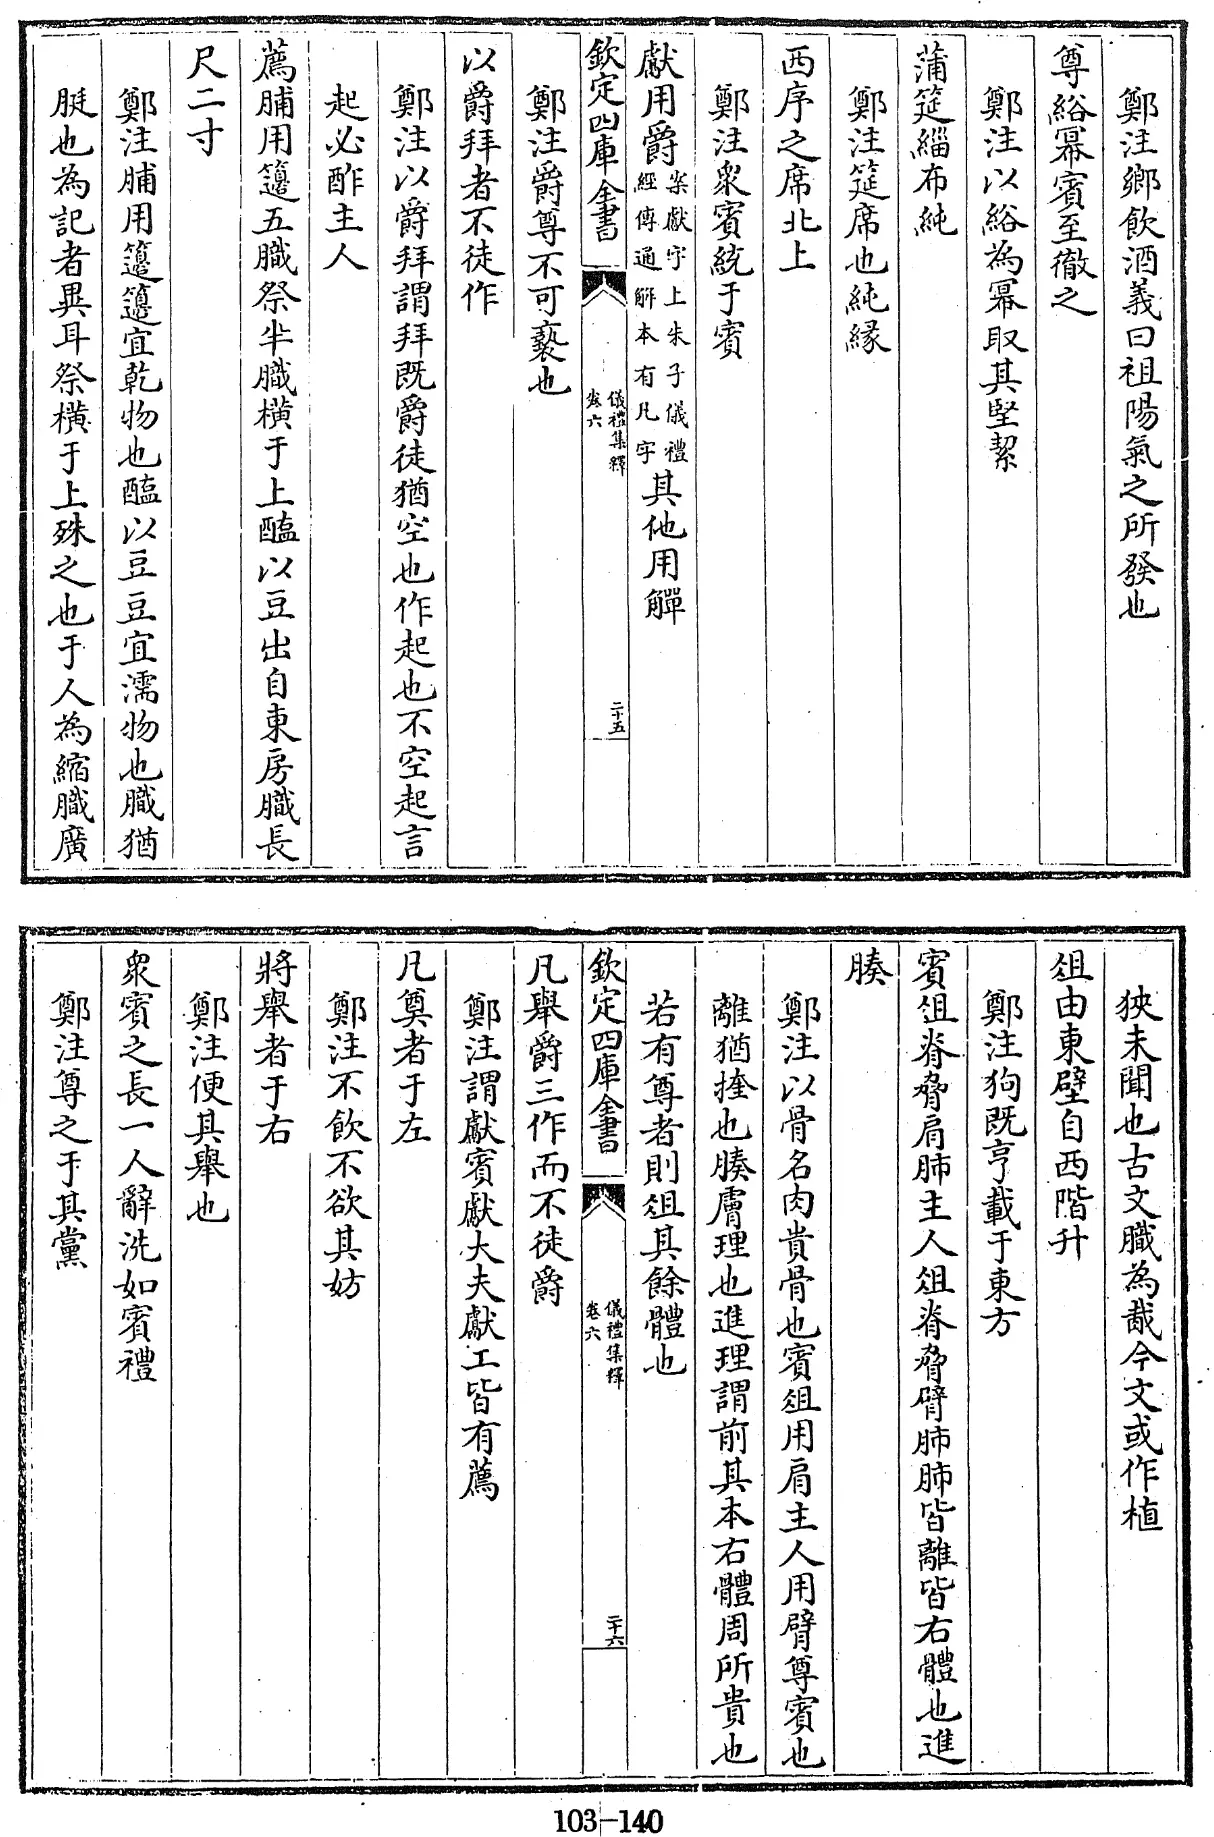 鄭注鄉飲酒義曰祖陽氣之所發也
尊綌冪賓至徹之
鄭注以綌為冪取其堅絜
蒲筵緇布純
鄭注筵席也純緣
西序之席北上
鄭注衆賓統于賓
獻用爵案獻字上朱子儀禮經傳通解本有凡字其他用觶
欽定四庫全書
儀禮集釋
卷六
二十五
鄭注爵尊不可褻也
以爵拜者不徒作
鄭注以爵拜謂拜既爵徒猶空也作起也不空起言
起必酢主人
薦脯用籩五膱祭半膱橫于上醢以豆出自東房膱長
尺二寸
鄭注脯用籩籩宜乾物也醢以豆豆宜濡物也膱猶
脡也為記者異耳祭橫于上殊之也于人為縮膱廣
狹未聞也古文膱為胾今文或作植
俎由東壁自西階升
鄭注狗既亨載于東方
賓俎脊脅肩肺主人俎脊脅臂肺肺皆離皆右體也進
腠
鄭注以骨名肉貴骨也賓俎用肩主人用臂尊賓也
離猶㨒也腠膚理也進理謂前其本右體周所貴也
若有尊者則俎其餘體也
欽定四庫全書
儀禮集釋
卷六
二十六
凡舉爵三作而不徒爵
鄭注謂獻賓獻大夫獻工皆有薦
凡奠者于左
鄭注不飲不欲其妨
將舉者于右
鄭注便其舉也
衆賓之長一人辭洗如賓禮
鄭注尊之于其黨
103-140